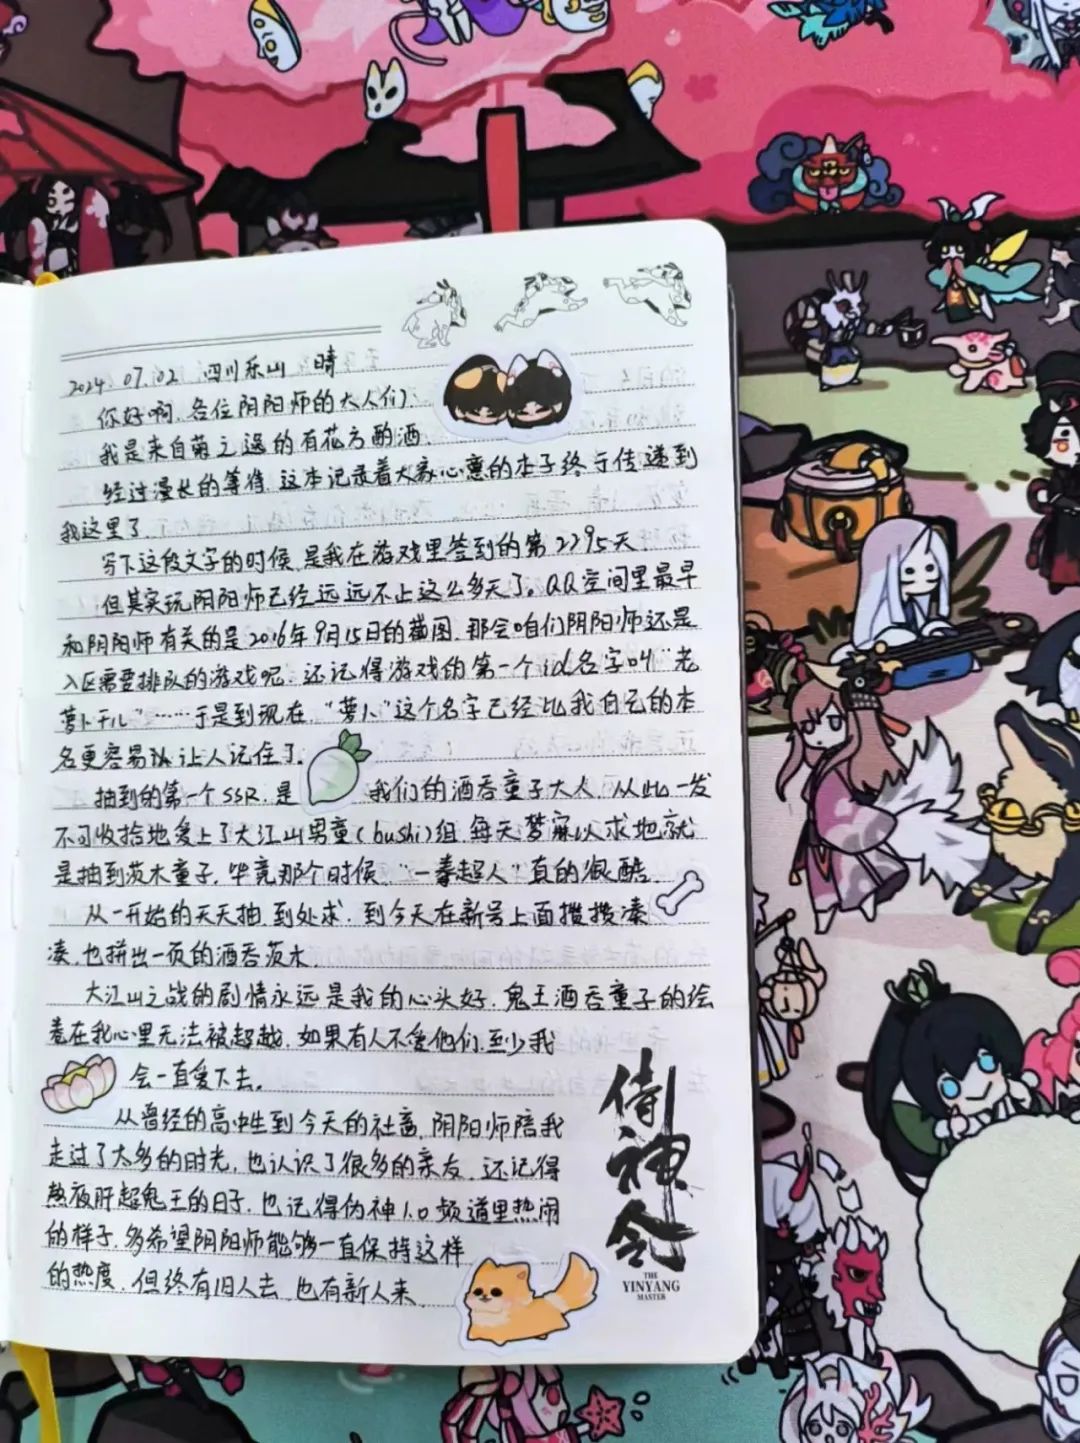 2024 07.02 四川乐山 晴
你好啊,各位阴阳师的大人们:
我是来自菊之遥的有花方酌酒.
经过漫长的等待,这本记录着大家心意的本子终于传递到
我这里了.
写下这段文字的时候,是我在游戏里签到的第2295天.
但其实玩阴阳师已经远远不止这么多天了。QQ空间里最早
和阴阳师有关的是2016年9月15日的截图,那会咱们阴阳师还是
入区需要排队的游戏呢,还记得游戏的第一个id名字叫"老
萝卜干儿"……于是到现在,"萝卜"这个名字已经比我自己的本
名更容易让人记住了。
抽到的第一个SSR,是我们的酒吞童子大人,从此一发
不可收拾地爱上了大江山男童(bushi)组,每天梦寐以求地就
是抽到茨木童子,毕竟那个时候,"一拳超人"真的很酷.
从一开始的天天抽,到处求,到今天在新号上面攒攒凑
凑,也拼出一页的酒吞茨木.
大江山之战的剧情永远是我的心头好,鬼王酒吞童子的绘
卷在我心里无法被超越,如果有人不爱他们,至少我
会一直爱下去。
从曾经的高中生到今天的社畜,阴阳师陪我
走过了太多的时光,也认识了很多的亲友,还记得
熬夜肝超鬼王的日子,也记得伪神1.0频道里热闹
的样子,多希望阴阳师能够一直保持这样
的热度,但终有旧人去,也有新人来.
侍神令
THE
YINYANG
MASTER